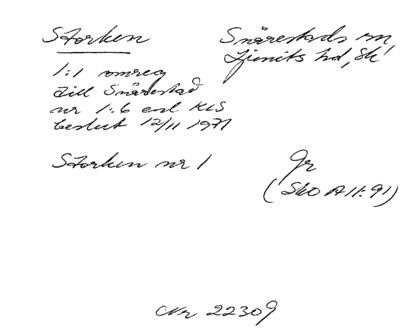 Storken
Snårestads sn
Ljunits hd, Sk
1:1 omreg
till Snårestad
nr 1:6 enl KLS
beslut 12/11 1971
Storken nr 1
Jr
(Sko A11:91)
Nr 22309